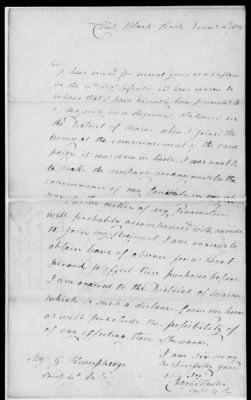 Camp Black Rock
Sir,
I have served for several years as a captain
in the 4th Infantry and have reason to
believe that I have recently been promoted to
a majority in a regiment stationed in
the District of Maine. When I joined the
army at the commencement of the cam
paign it was done in haste. I was unable
to make the necessary arrangements for the
convenience of my family in
notice of my Promotion
will probably be accompanied with orders
to join my Regiment. I am anxious to
obtain leave of absence for a short
period to effect this purpose before
I am ordered to the District of Maine
which is such a distance from me here
as will preclude the possibility of
of my effecting them afterwards.
I am Sir very
respectfully your
obdt
Maj G. Humphreys
Comg 4th Inf